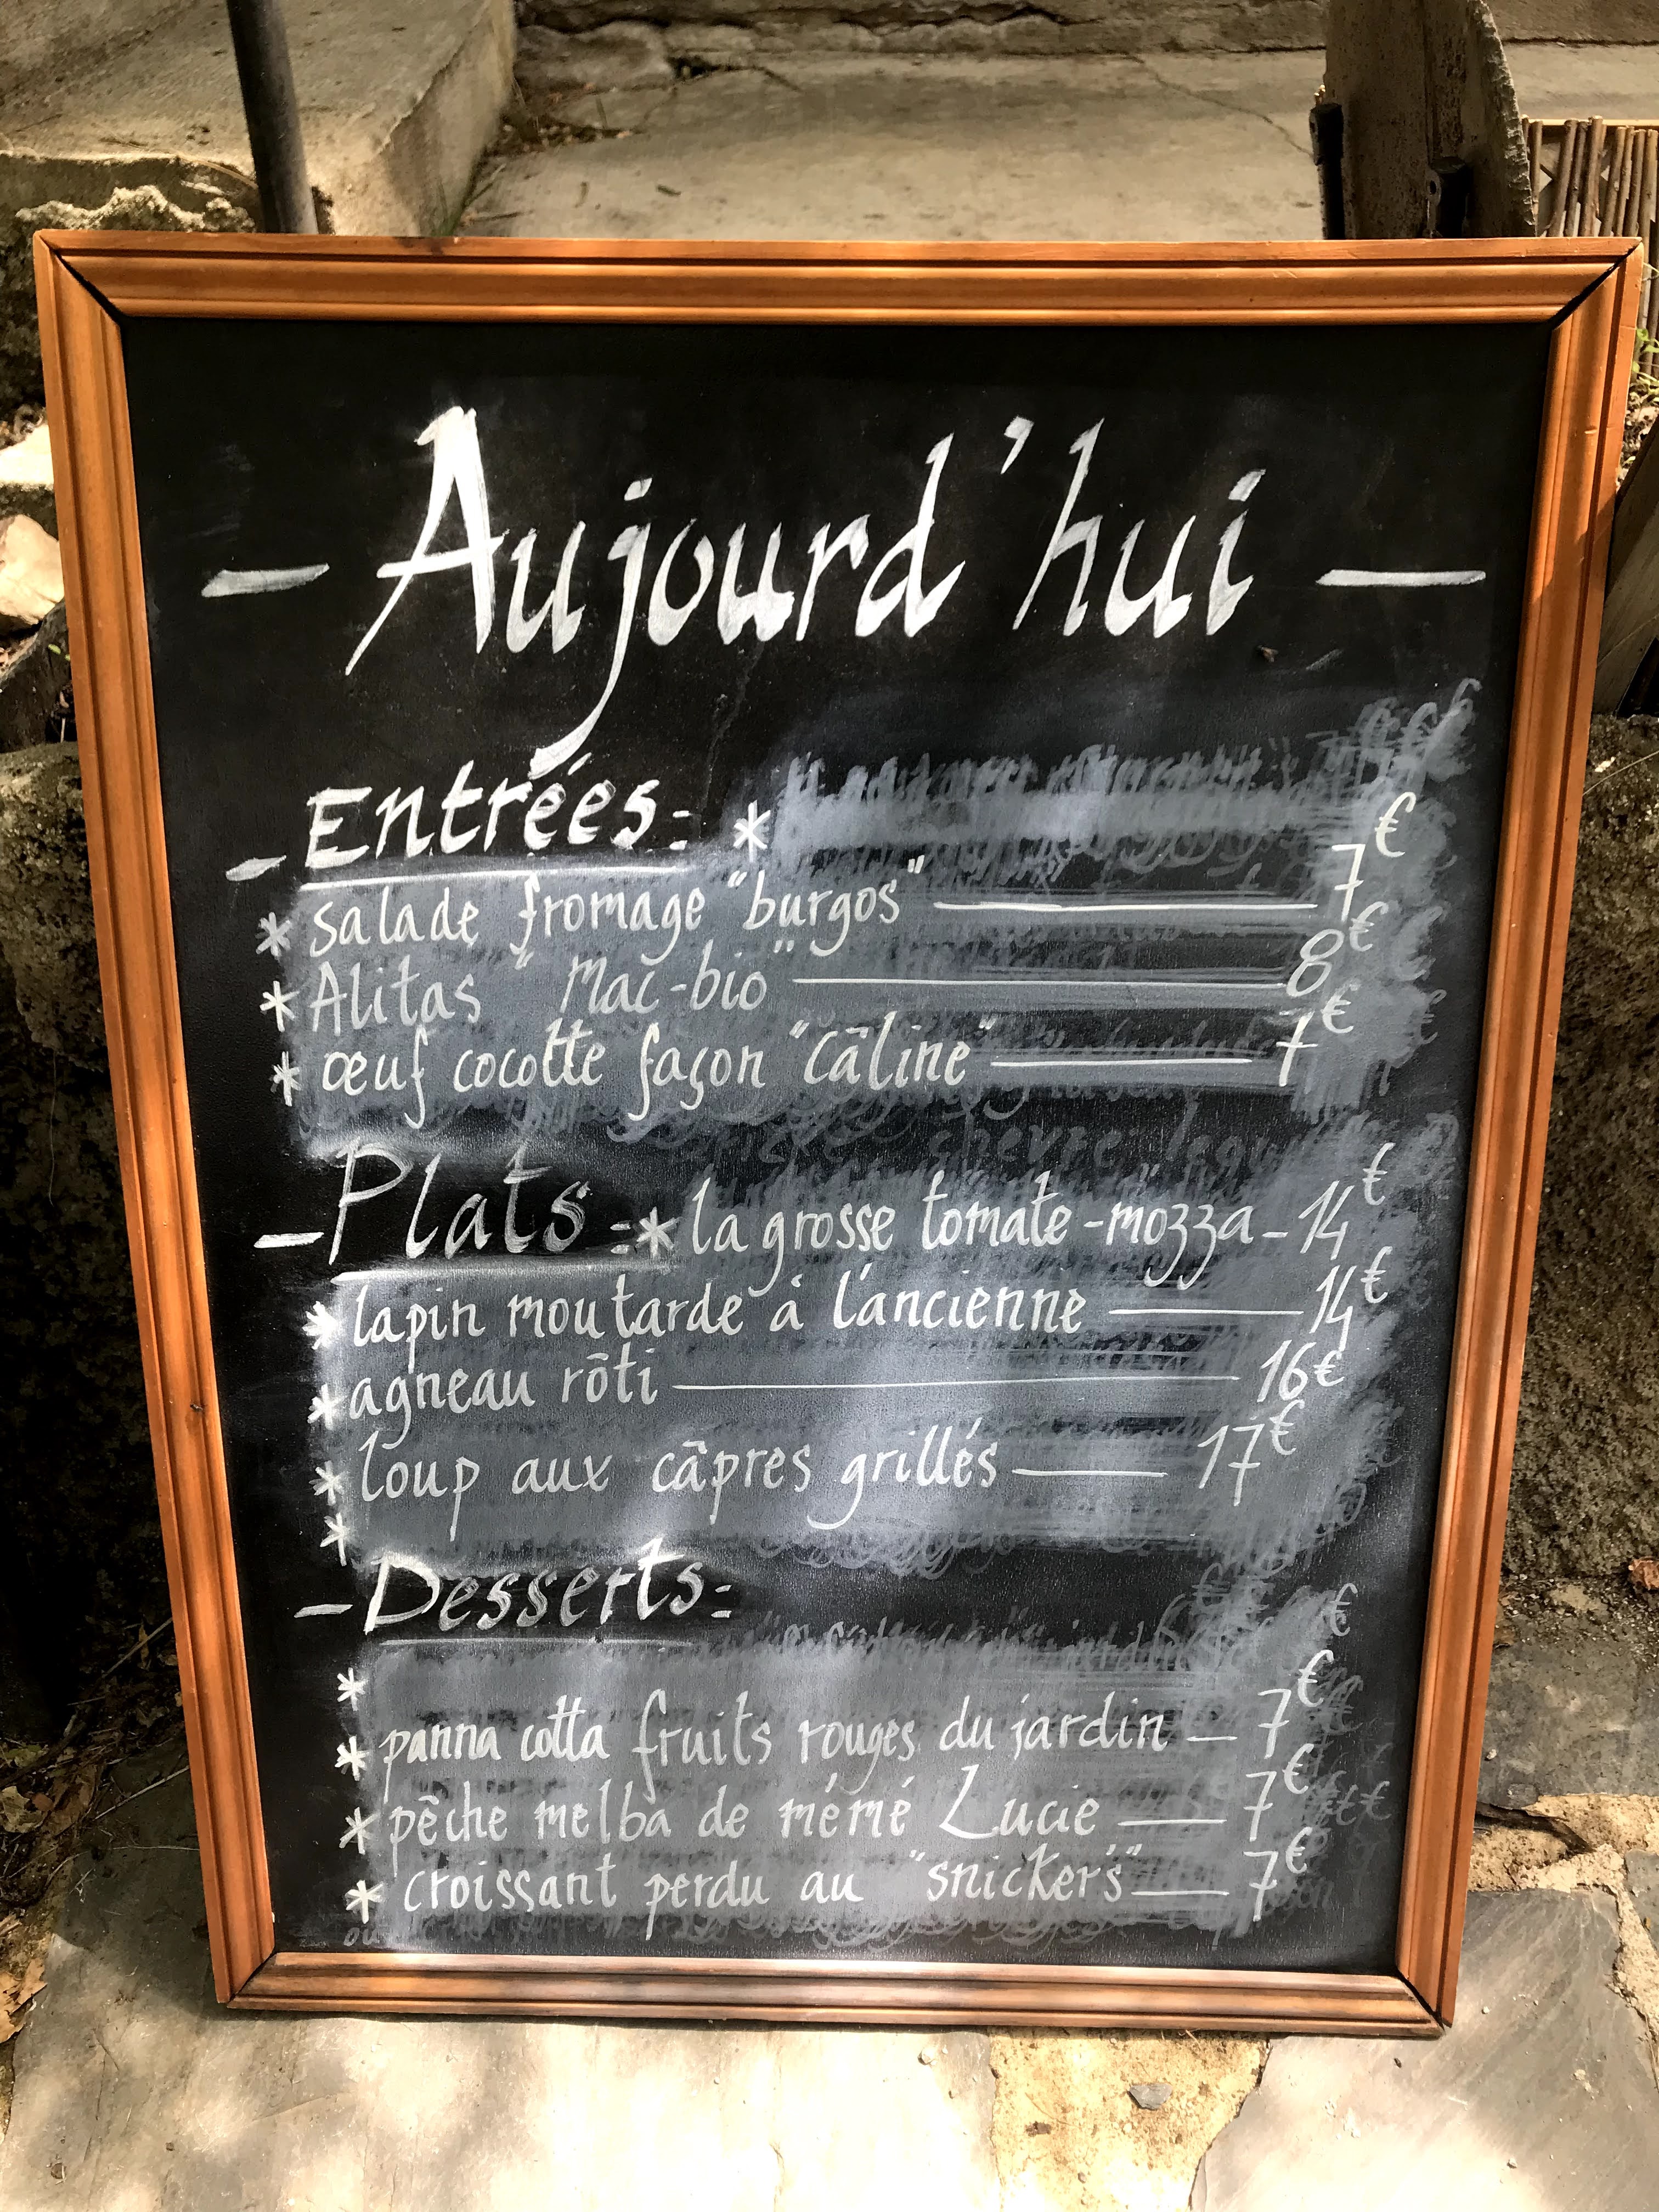 - Aujourd'hui -
- Entrées : *
* salade fromage "burgos" — 7€
* Alitas "Mac-bio" — 8€
* œuf cocotte façon "câline" — 7€
- Plats : * la grosse tomate-mozza - 14€
* lapin moutarde à l'ancienne — 14€
* agneau rôti — 16€
* loup aux câpres grillés — 17€
*
- Desserts :
*
* panna cotta fruits rouges du jardin — 7€
* pêche melba de mémé Lucie — 7€
* croissant perdu au "snicker's" — 7€